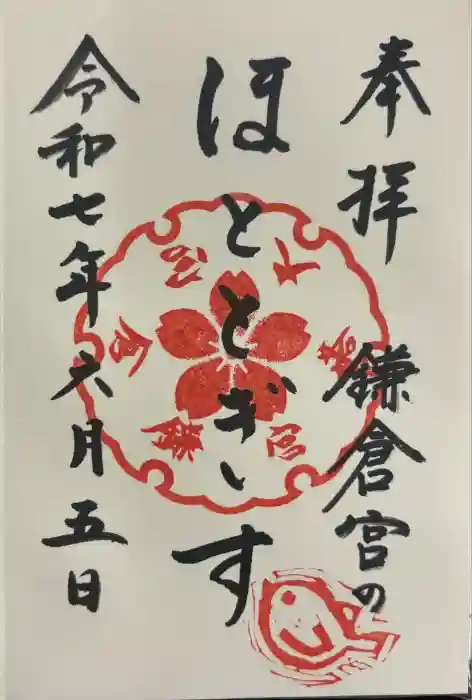 奉拝
鎌倉宮の
ほととぎす
令和七年六月五日